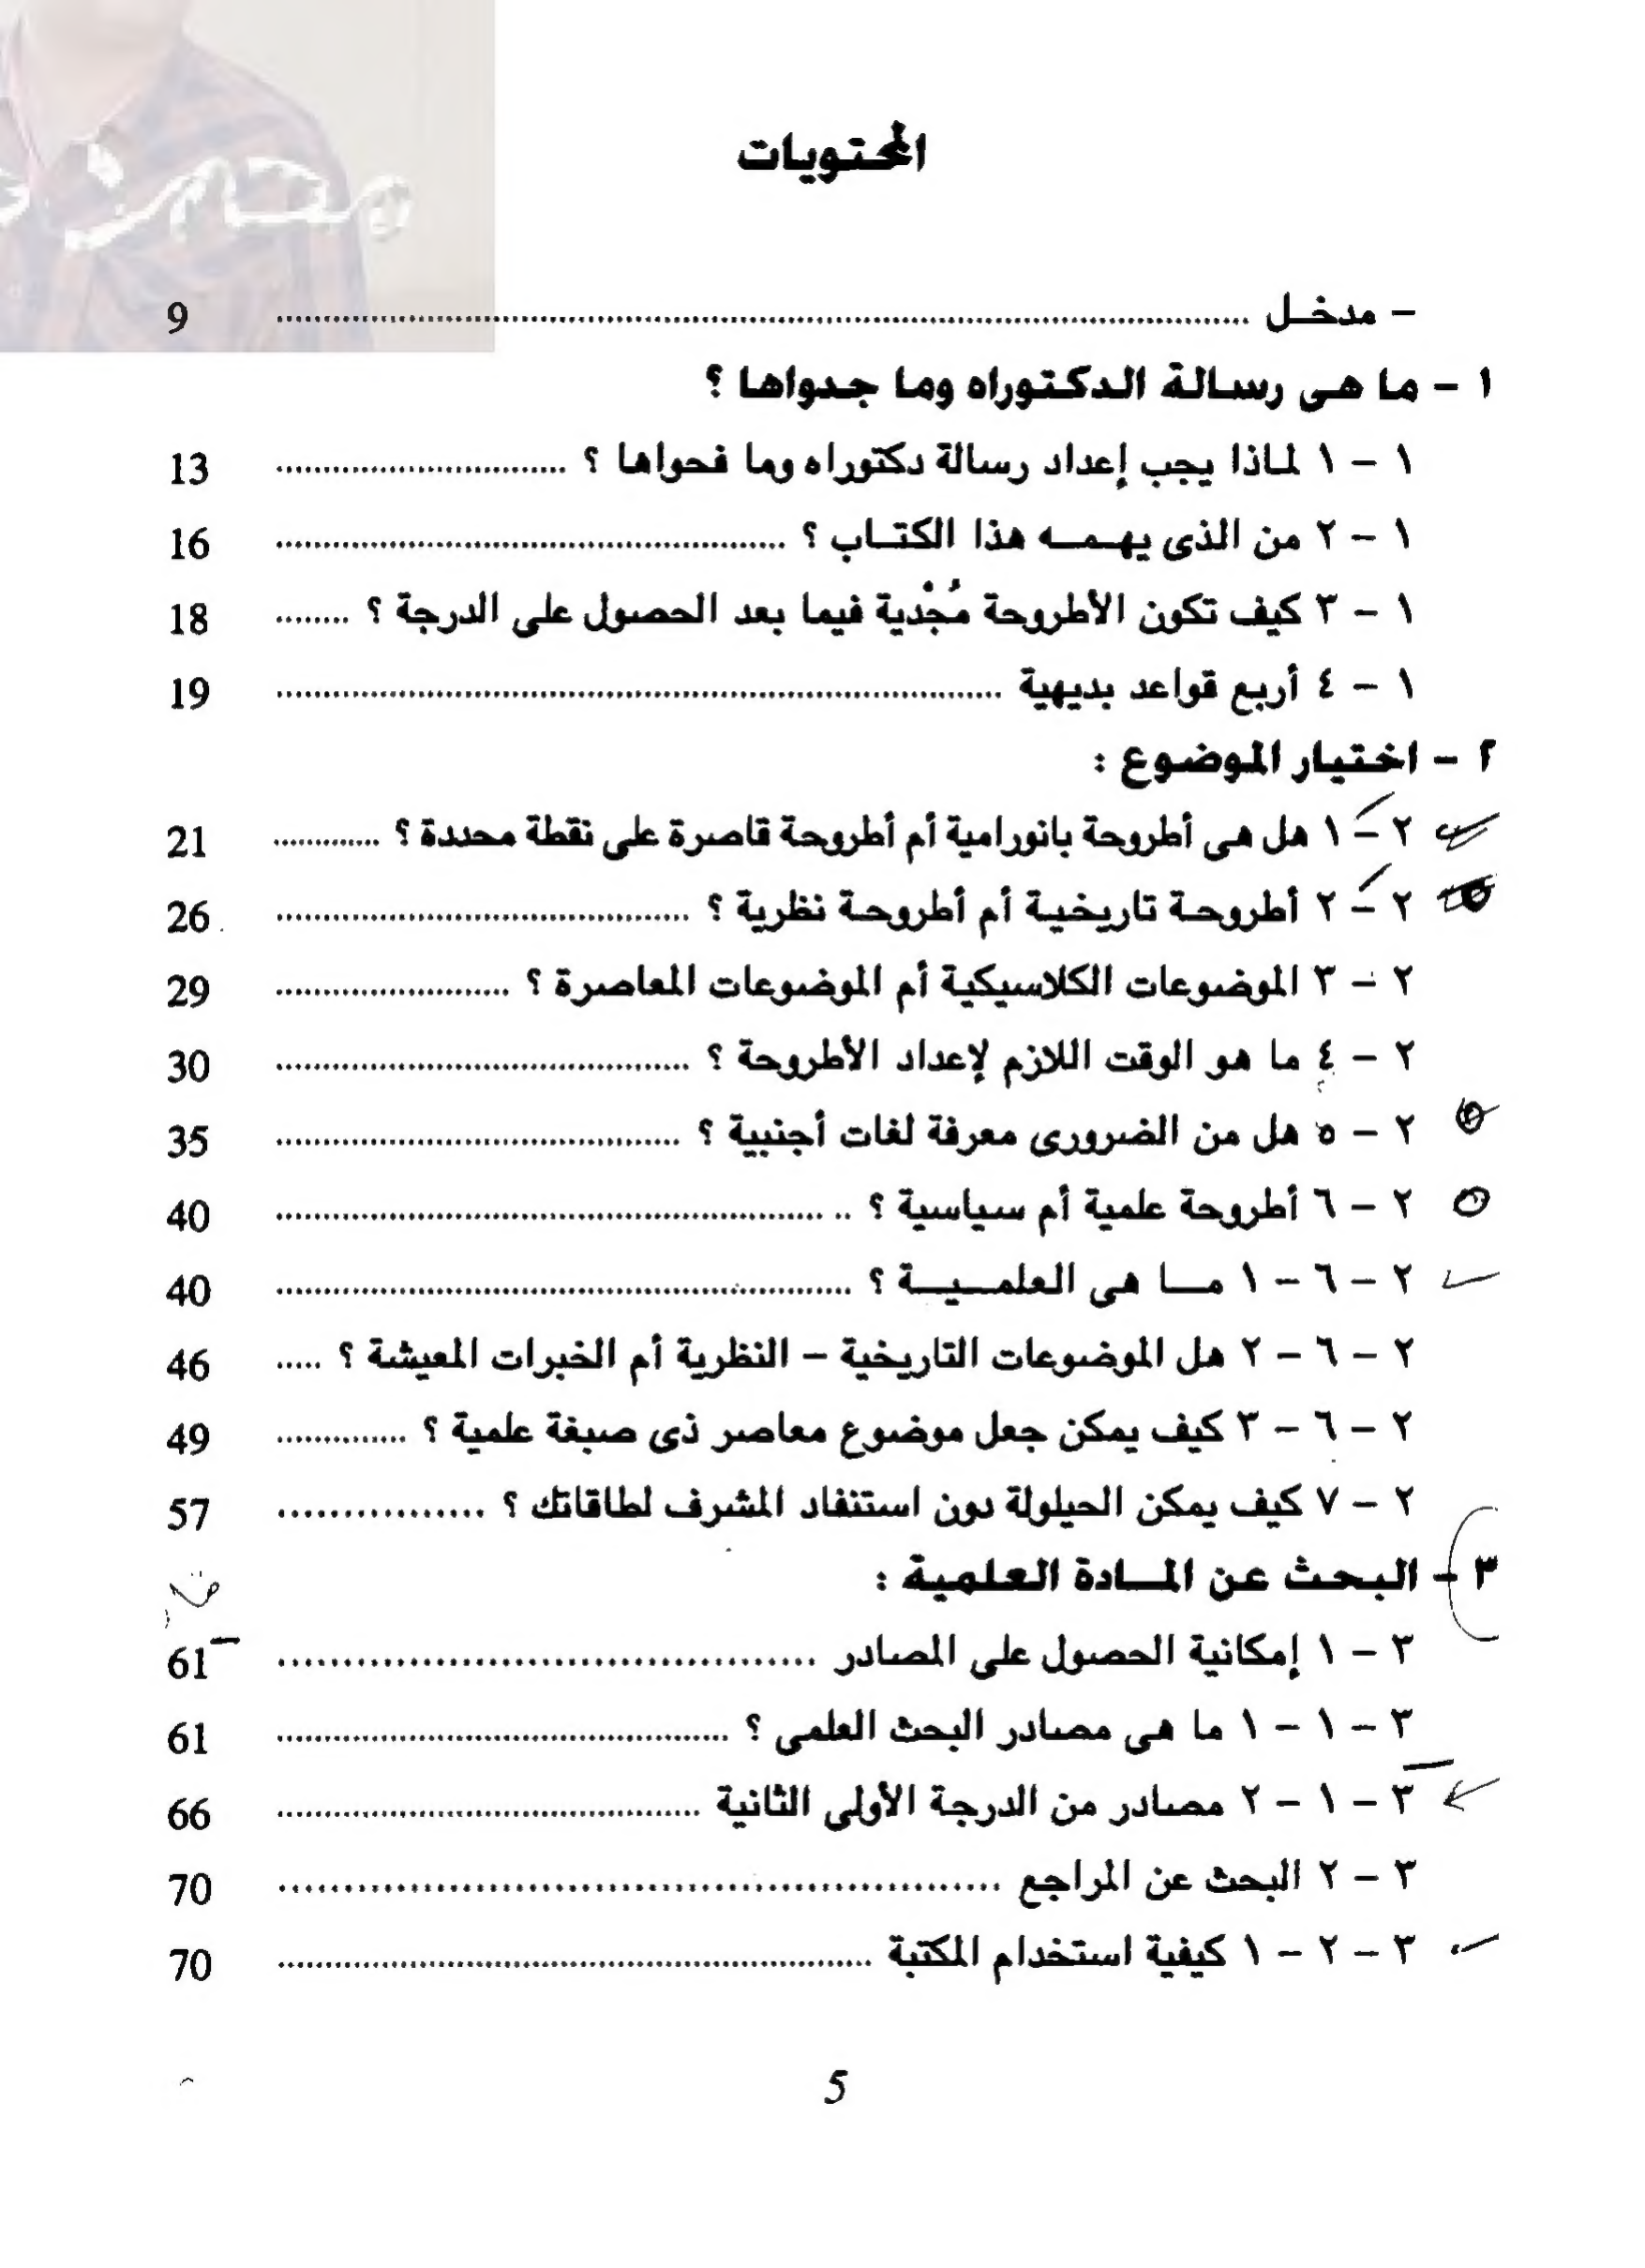 المحتويات
– مدخل ........ 9
١ – ما هى رسالة الدكتوراه وما جدواها ؟
١ – ١ لماذا يجب إعداد رسالة دكتوراه وما فحواها ؟ ........ 13
١ – ٢ من الذى يهمه هذا الكتاب ؟ ........ 16
١ – ٣ كيف تكون الأطروحة مُجْدية فيما بعد الحصول على الدرجة ؟ ........ 18
١ – ٤ أربع قواعد بديهية ........ 19
٢ – اختيار الموضوع :
٢ – ١ هل هى أطروحة بانورامية أم أطروحة قاصرة على نقطة محددة ؟ ........ 21
٢ – ٢ أطروحة تاريخية أم أطروحة نظرية ؟ ........ 26
٢ – ٣ الموضوعات الكلاسيكية أم الموضوعات المعاصرة ؟ ........ 29
٢ – ٤ ما هو الوقت اللازم لإعداد الأطروحة ؟ ........ 30
٢ – ٥ هل من الضرورى معرفة لغات أجنبية ؟ ........ 35
٢ – ٦ أطروحة علمية أم سياسية ؟ ........ 40
٢ – ٦ – ١ ما هى العلمية ؟ ........ 40
٢ – ٦ – ٢ هل الموضوعات التاريخية – النظرية أم الخبرات المعيشة ؟ ..... 46
٢ – ٦ – ٣ كيف يمكن جعل موضوع معاصر ذى صبغة علمية ؟ ........ 49
٢ – ٧ كيف يمكن الحيلولة دون استنفاد المشرف لطاقاتك ؟ ........ 57
٣ – البحث عن المادة العلمية :
٣ – ١ إمكانية الحصول على المصادر ........ 61
٣ – ١ – ١ ما هى مصادر البحث العلمى ؟ ........ 61
٣ – ١ – ٢ مصادر من الدرجة الأولى الثانية ........ 66
٣ – ٢ البحث عن المراجع ........ 70
٣ – ٢ – ١ كيفية استخدام المكتبة ........ 70
5